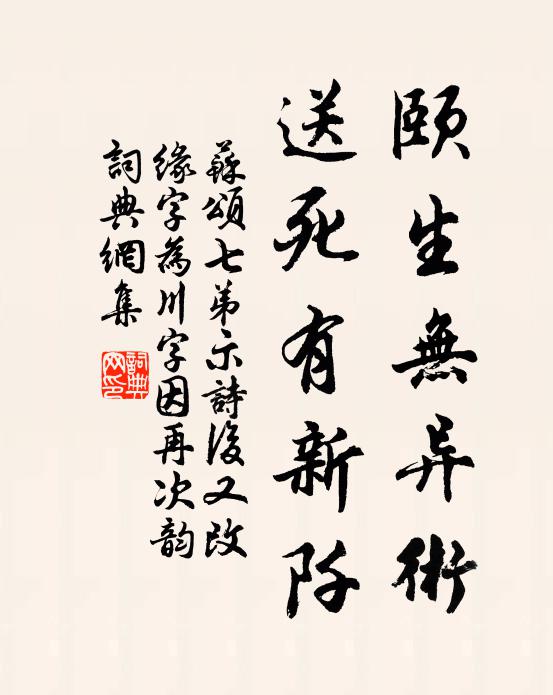 頤生無异術
送死有新阡
蘇頌七弟示詩後又改
緣字為川字因再次韵
詞典網集
詞典網印